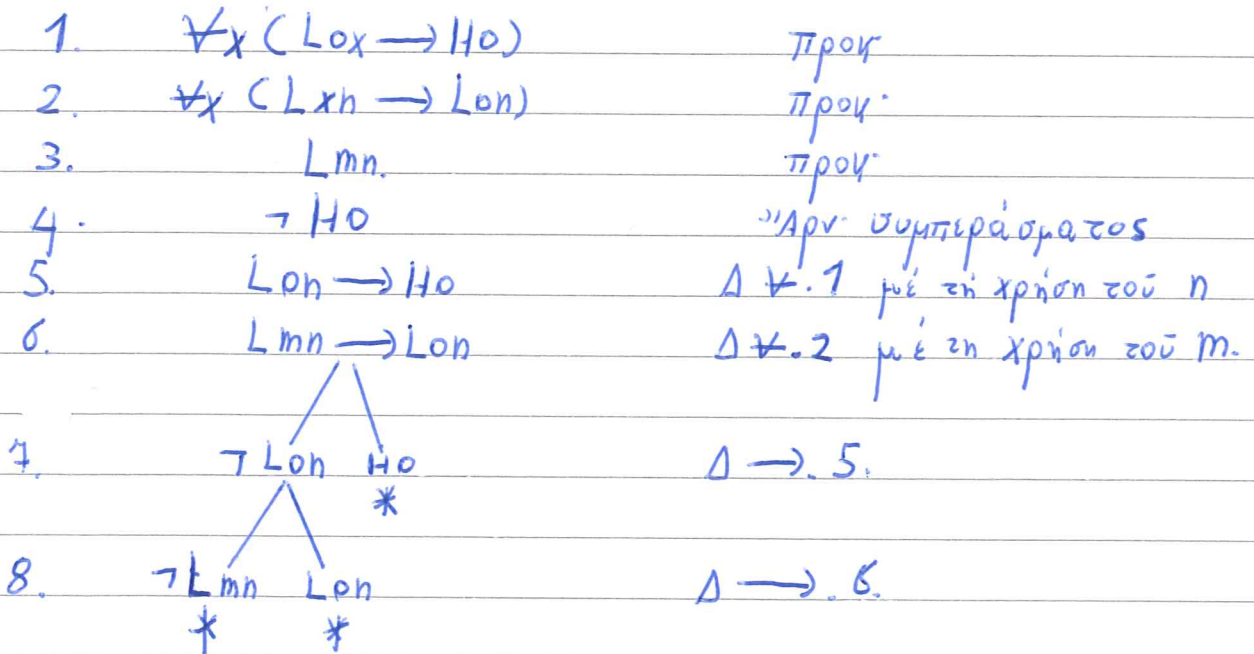 1. ∀x (Lox → Ho) προκ·
2. ∀x (Lxn → Lon) προκ·
3. Lmn. προκ·
4. ¬ Ho Ἀρν· συμπεράσματος
5. Lon → Ho Δ ∀.1 μέ τή χρήση τοῦ n
6. Lmn → Lon Δ ∀.2 μέ τη χρήση τοῦ m.
7. ¬ Lon Ho Δ →. 5.
*
8. ¬ Lmn Lon Δ →. 6.
* *